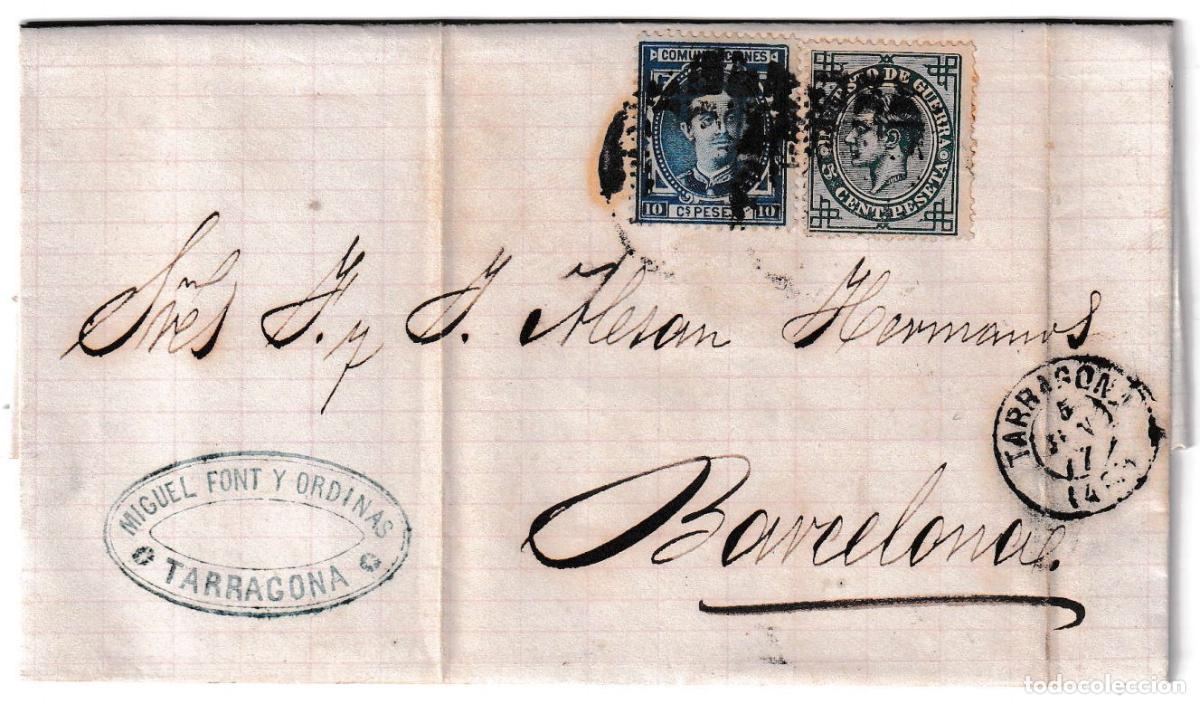 COMUNICACIONES
10 Cs PESETA 10
IMPUESTO DE GUERRA
5 CENT. PESETA
Sres J. y J. Alesan Hermanos
TARRAGONA
5
17
MIGUEL FONT Y ORDINAS
TARRAGONA
Barcelona.
todocoleccion